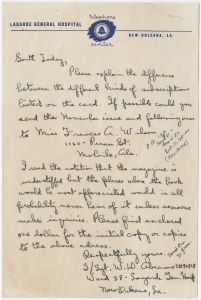 telephone
center
LAGARDE GENERAL HOSPITAL
NEW ORLEANS, LA.
South Today,
Please explain the difference
between the different kinds of subscriptions
listed on the card. If possible could you
send the November issue and following ones
to Miss Frances A. Wilson
1160 St.
Mobile, Ala.
I read the notation that the magazine is
and the places where the Book
would be most appreciated would in all
probability never hear of it unless someone
makes inquiries. Please find enclosed
one dollar for the initial copy or copies
to the above address.
Respectfully yours,
S/Sgt. W. W. Abrams
Ward 38 - Lagarde Gen. Hosp
New Orleans, La.